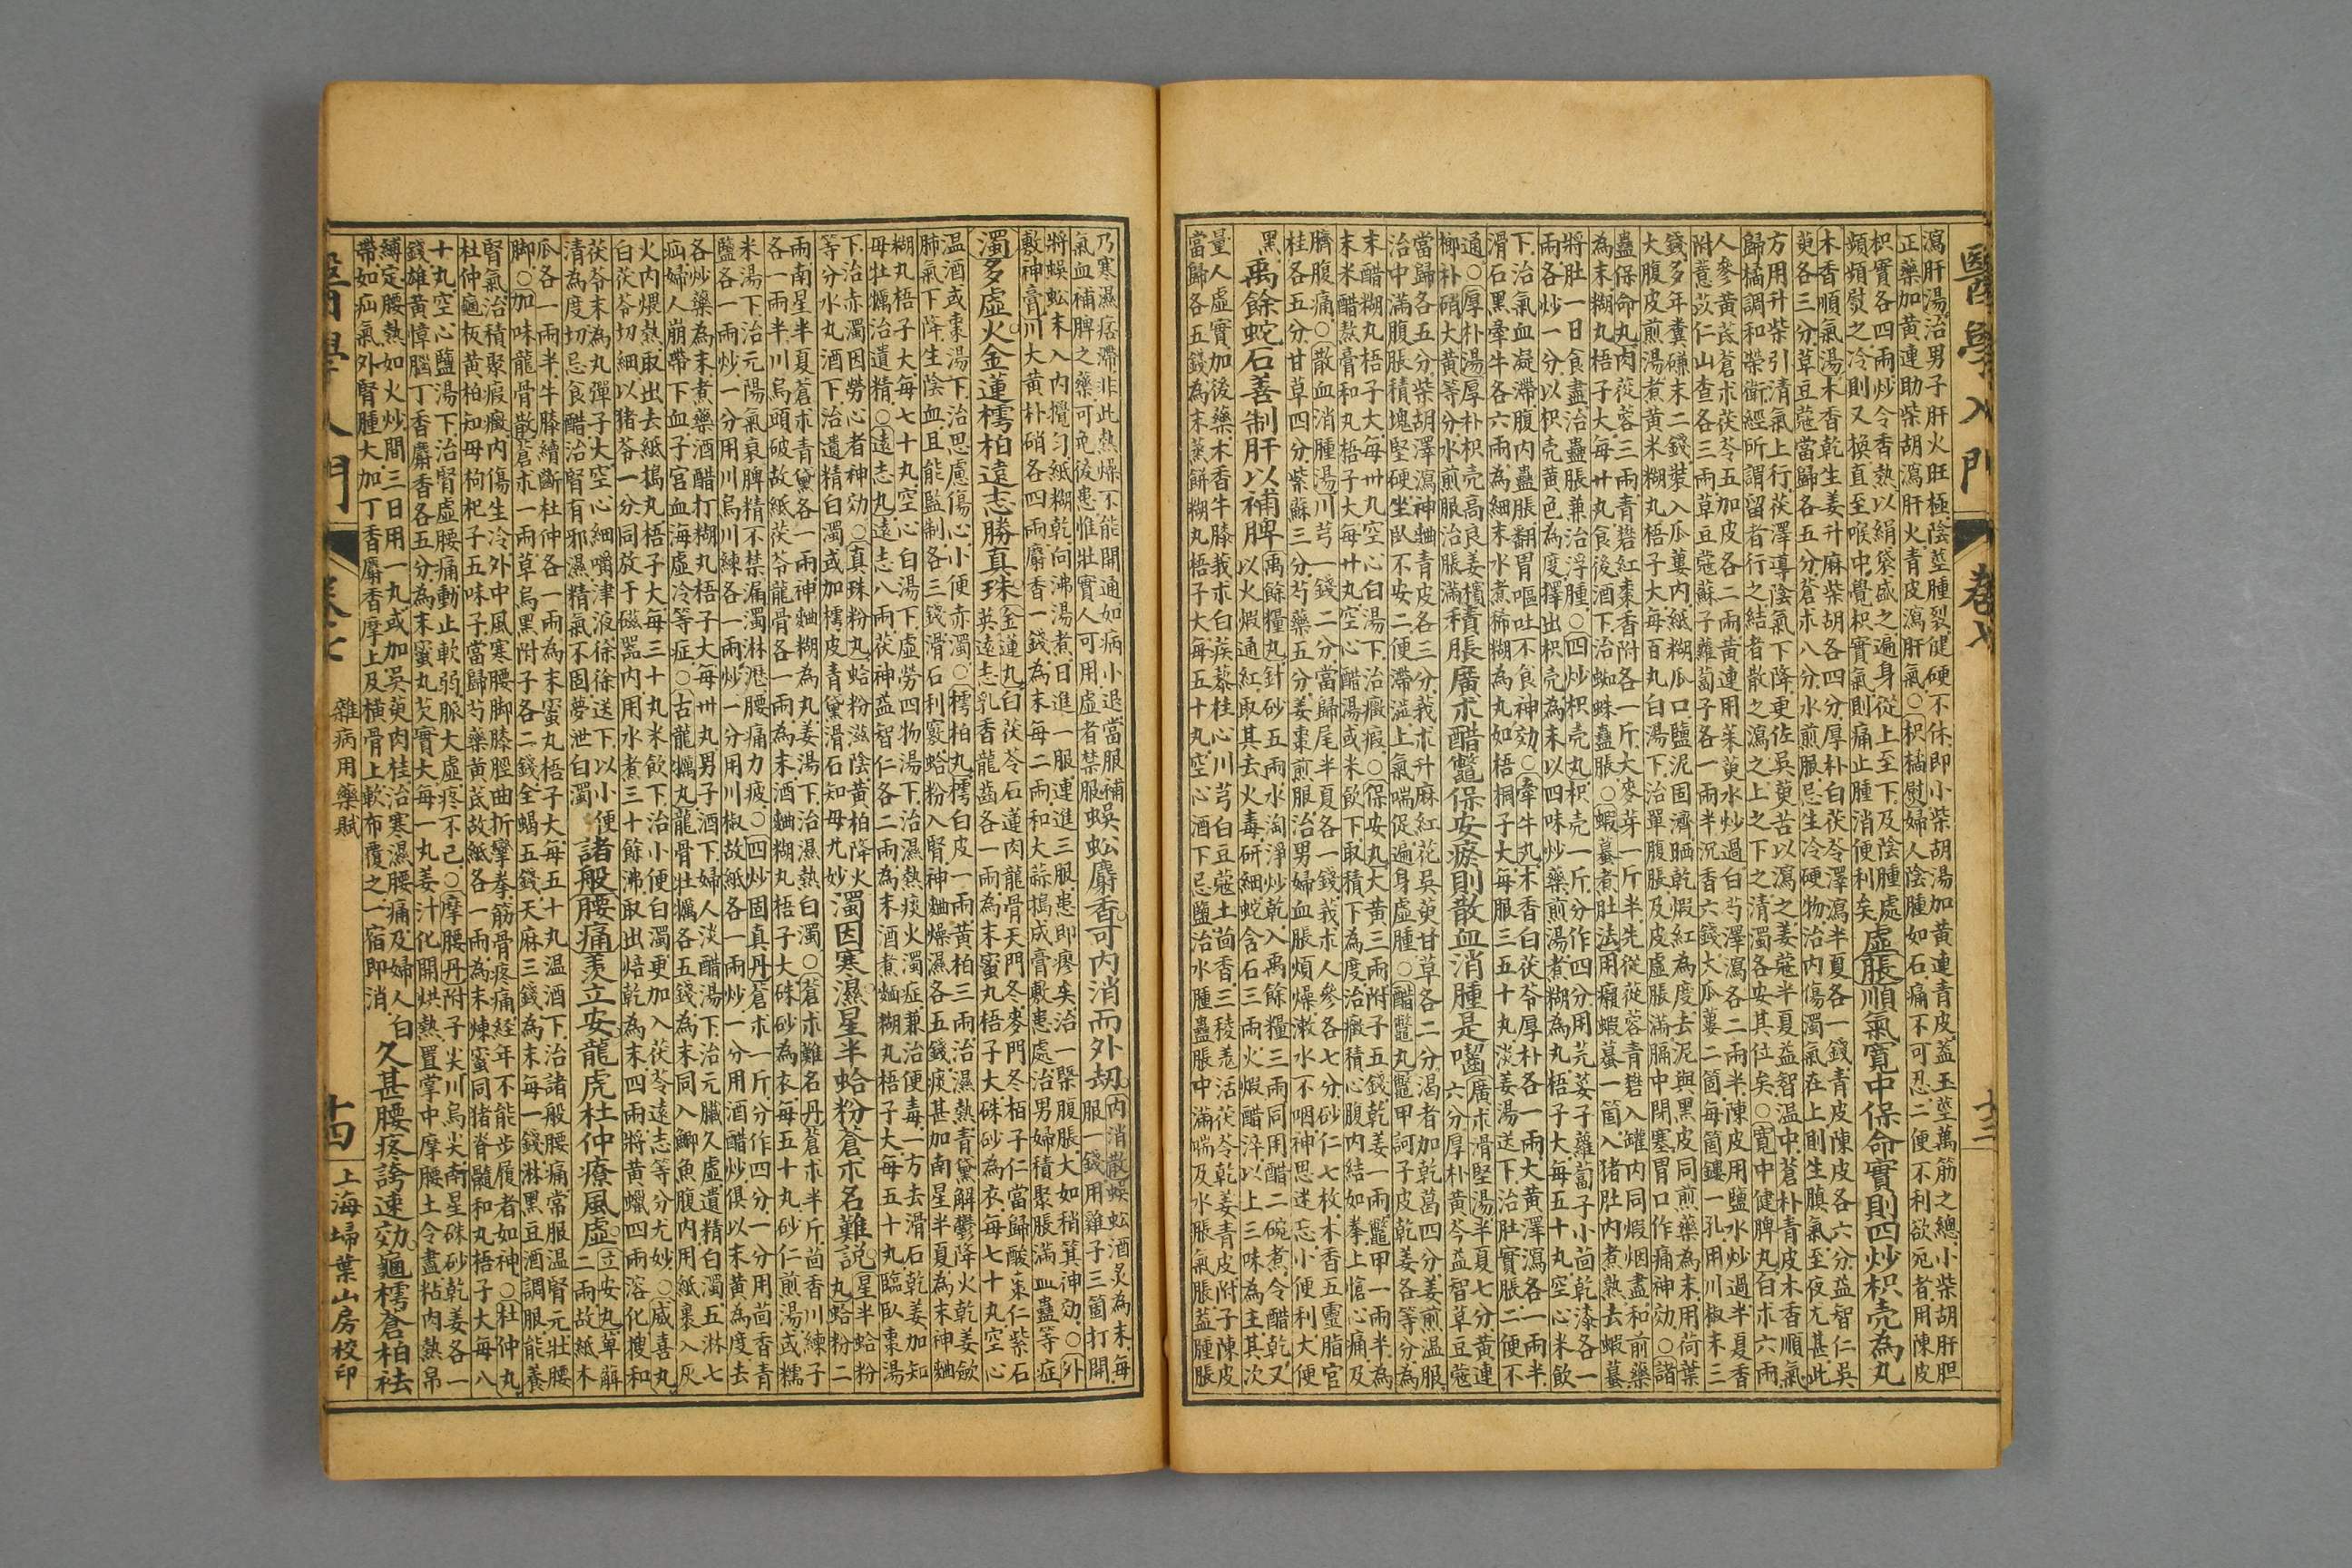 醫學入門 卷七 十三
瀉肝湯治男子肝火旺極陰莖腫裂健硬不休即小柴胡湯加黃連青皮蓋玉莖萬筋之總小柴胡肝胆
正藥加黃連助柴胡瀉肝火青皮瀉肝氣○枳橘熨婦人陰腫如石痛不可忍二便不利欲死者用陳皮
枳實各四兩炒令香熱以絹袋盛之遍身從上至下及陰腫處
頻頻熨之冷則又換直至喉中覺枳實氣則痛止腫消便利矣
虛脹順氣寬中保命實則四炒枳壳為丸
木香順氣湯木香乾生姜升麻柴胡各四分厚朴白茯苓澤瀉半夏各一錢青皮陳皮各六分益智仁吳
萸各三分草豆蔻當歸各五分蒼朮八分水煎服忌生冷硬物治內傷濁氣在上則生䐜氣至夜尤甚此
方用升柴引清氣上行茯澤導陰氣下降更佐吳萸苦以瀉之姜蔻半夏益智溫中蒼朴青皮木香順氣
歸橘調和榮衛經所謂留者行之結者散之瀉之上之下之清濁各安其位矣○寬中健脾丸白朮六兩
人參黃芪蒼朮茯苓五加皮各二兩黃連用茱萸水炒過白芍澤瀉各二兩半陳皮用鹽水炒過半夏香
附薏苡仁山查各三兩草豆蔻蘇子蘿蔔子各一兩半沉香六錢大瓜蔞二箇每箇鏤一孔用川椒末三
錢多年糞磏末二錢裝入瓜蔞內紙糊瓜口鹽泥固濟晒乾煆紅為度去泥與黑皮同煎藥為末用荷葉
大腹皮煎湯煮黃米糊丸梧子大每百丸白湯下治單腹脹及皮虛脹滿膈中閉塞胃口作痛神効○諸
蠱保命丸肉蓯蓉三兩青礬紅棗香附各一斤大麥芽一斤半先從蓯蓉青礬入罐內同煆烟盡和前藥
為末糊丸梧子大每廿丸食後酒下治蜘蛛蠱脹○蝦蟇煮肚法用癩蝦蟇一箇入猪肚內煮熟去蝦蟇
將肚一日食盡治蠱脹兼治浮腫○四炒枳壳丸枳壳一斤分作四分用芫荽子蘿蔔子小茴乾漆各一
兩各炒一分以枳壳黃色為度擇出枳壳為末以四味炒藥煎湯煮糊為丸梧子大每五十丸空心米飲
下治氣血凝滯腹內蠱脹翻胃嘔吐不食神効○牽牛丸木香白茯苓厚朴各一兩大黃澤瀉各一兩半
滑石黑牽牛各六兩為細末水煮稀糊為丸如梧桐子大每服三五十丸淡姜湯送下治肚實脹二便不
通○厚朴湯厚朴枳壳高良姜檳
榔朴硝大黃等分水煎服治脹滿
積脹廣朮醋鱉保安瘀則散血消腫是囓
廣朮滑堅湯半夏七分黃連
六分厚朴黃芩益智草豆蔻
當歸各五分柴胡澤瀉神麯青皮各三分莪朮升麻紅花吳萸甘草各二分渴者加乾葛四分姜煎溫服
治中滿腹脹積塊堅硬坐臥不安二便滯澁上氣喘促遍身虛腫○醋鱉丸鱉甲訶子皮乾姜各等分為
末醋糊丸梧子大每卅丸空心白湯下治癥瘕○保安丸大黃三兩附子五錢乾姜一兩鱉甲一兩半為
末米醋熬膏和丸梧子大每廿丸空心醋湯或米飲下取積下為度治癥積心腹內結如拳上愴心痛及
臍腹痛○散血消腫湯川芎一錢二分當歸尾半夏各一錢莪朮人參各七分砂仁七枚木香五靈脂官
桂各五分甘草四分紫蘇三分芍藥五分姜棗煎服治男婦血脹煩燥漱水不咽神思迷忘小便利大便
黑
禹餘蛇石善制肝以補脾
禹餘糧丸針砂五兩水淘淨炒乾入禹餘糧三兩同用醋二碗煮令醋乾又
以火煆通紅取其去火毒研細蛇含石三兩火煆醋淬以上三味為主其次
量人虛實加後藥木香牛膝莪朮白蒺藜桂心川芎白豆蔻土茴香三稜羌活茯苓乾姜青皮附子陳皮
當歸各五錢為末蒸餅糊丸梧子大每五十丸空心酒下忌鹽治水腫蠱脹中滿喘及水脹氣脹蓋腫脹
乃寒濕痞滯非此熱燥不能開通如病小退當服補
氣血補脾之藥可免後患惟壯實人可用虛者禁服
蜈蚣麝香可內消而外刧
內消散蜈蚣酒炙為末每
服一錢用雞子三箇打開
將蜈蚣末入內攪勻紙糊乾向沸湯煮日進一服連進三服患即瘳矣治一㮣腹脹大如稍箕神効○外
敷神膏川大黃朴硝各四兩麝香一錢為末每二兩和大蒜搗成膏敷患處治男婦積聚脹滿血蠱等症
濁多虛火金蓮樗柏遠志勝真珠
金蓮丸白茯苓石蓮肉龍骨天門冬麥門冬柏子仁當歸酸棗仁紫石
英遠志乳香龍齒各一兩為末蜜丸梧子大硃砂為衣每七十丸空心
溫酒或棗湯下治思慮傷心小便赤濁○樗柏丸樗白皮一兩黃柏三兩治濕熱青黛解鬱降火乾姜歛
肺氣下降生陰血且能監制各三錢滑石利竅蛤粉入腎神麯燥濕各五錢痰甚加南星半夏為末神麯
糊丸梧子大每七十丸空心白湯下虛勞四物湯下治濕熱痰火濁症兼治便毒一方去滑石乾姜加知
母牡蠣治遺精○遠志丸遠志八兩茯神益智仁各二兩為末酒煮麯糊丸梧子大每五十丸臨臥棗湯
下治赤濁因勞心者神効○真珠粉丸蛤粉滋陰黃柏降火
等分水丸酒下治遺精白濁或加樗皮青黛滑石知母尤妙
濁因寒濕星半蛤粉蒼朮名難說
星半蛤粉
丸蛤粉二
兩南星半夏蒼朮青黛各一兩神麯糊為丸姜湯下治濕熱白濁○蒼朮難名丹蒼朮半斤茴香川練子
各一兩半川烏頭破故紙茯苓龍骨各一兩為末酒麯糊丸梧子大硃砂為衣每五十丸砂仁煎湯或糯
米湯下治元陽氣衰脾精不禁漏濁淋瀝腰痛力疲○四炒固真丹蒼朮一斤分作四分一分用茴香青
鹽各一兩炒一分用川烏川練各一兩炒一分用川椒故紙各一兩炒一分用酒醋炒俱以末黃為度去
各炒藥為末煮藥酒醋打糊丸梧子大每卅丸男子酒下婦人淡醋湯下治元臟久虛遺精白濁五淋七
疝婦人崩帶下血子宮血海虛冷等症○古龍蠣丸龍骨牡蠣各五錢為末同入鯽魚腹內用紙裹入灰
火內煨熟取出去紙搗丸梧子大每三十丸米飲下治小便白濁更加入茯苓遠志等分尤妙○威喜丸
白茯苓切細以猪苓一分同放于磁器內用水煮三十餘沸取出焙乾為末四兩將黃蠟四兩溶化搜和
茯苓末為丸彈子大空心細嚼津液徐徐送下以小便
清為度切忌食醋治腎有邪濕精氣不固夢泄白濁
諸般腰痛羨立安龍虎杜仲療風虛
立安丸草薢
二兩故紙木
瓜各一兩半牛膝續斷杜仲各一兩為末蜜丸梧子大每五十丸溫酒下治諸般腰痛常服溫腎元壯腰
脚○加味龍骨散蒼朮一兩草烏黑附子各二錢全蝎五錢天麻三錢為末每一錢淋黑豆酒調服能養
腎氣治積聚瘕癥內傷生冷外中風寒腰脚膝脛曲折攣拳筋骨疼痛經年不能步履者如神○杜仲丸
杜仲龜板黃柏知母枸杞子五味子當歸芍藥黃芪故紙各一兩為末煉蜜同猪脊髓和丸梧子大每八
十丸空心鹽湯下治腎虛腰痛動止軟弱脈大虛疼不已○摩腰丹附子尖川烏尖南星硃砂乾姜各一
錢雄黃樟腦丁香麝香各五分為末蜜丸芡實大每一丸姜汁化開烘熱置掌中摩腰上令盡粘肉熱帛
縛定腰熱如火炒間三日用一丸或加吳萸肉桂治寒濕腰痛及婦人白
帶如疝氣外腎腫大加丁香麝香摩上及橫骨上軟布覆之一宿即消
久甚腰疼誇速効龜樗蒼柏祛
醫學入門 卷七 雜病用藥賦 十四 上海埽葉山房校印